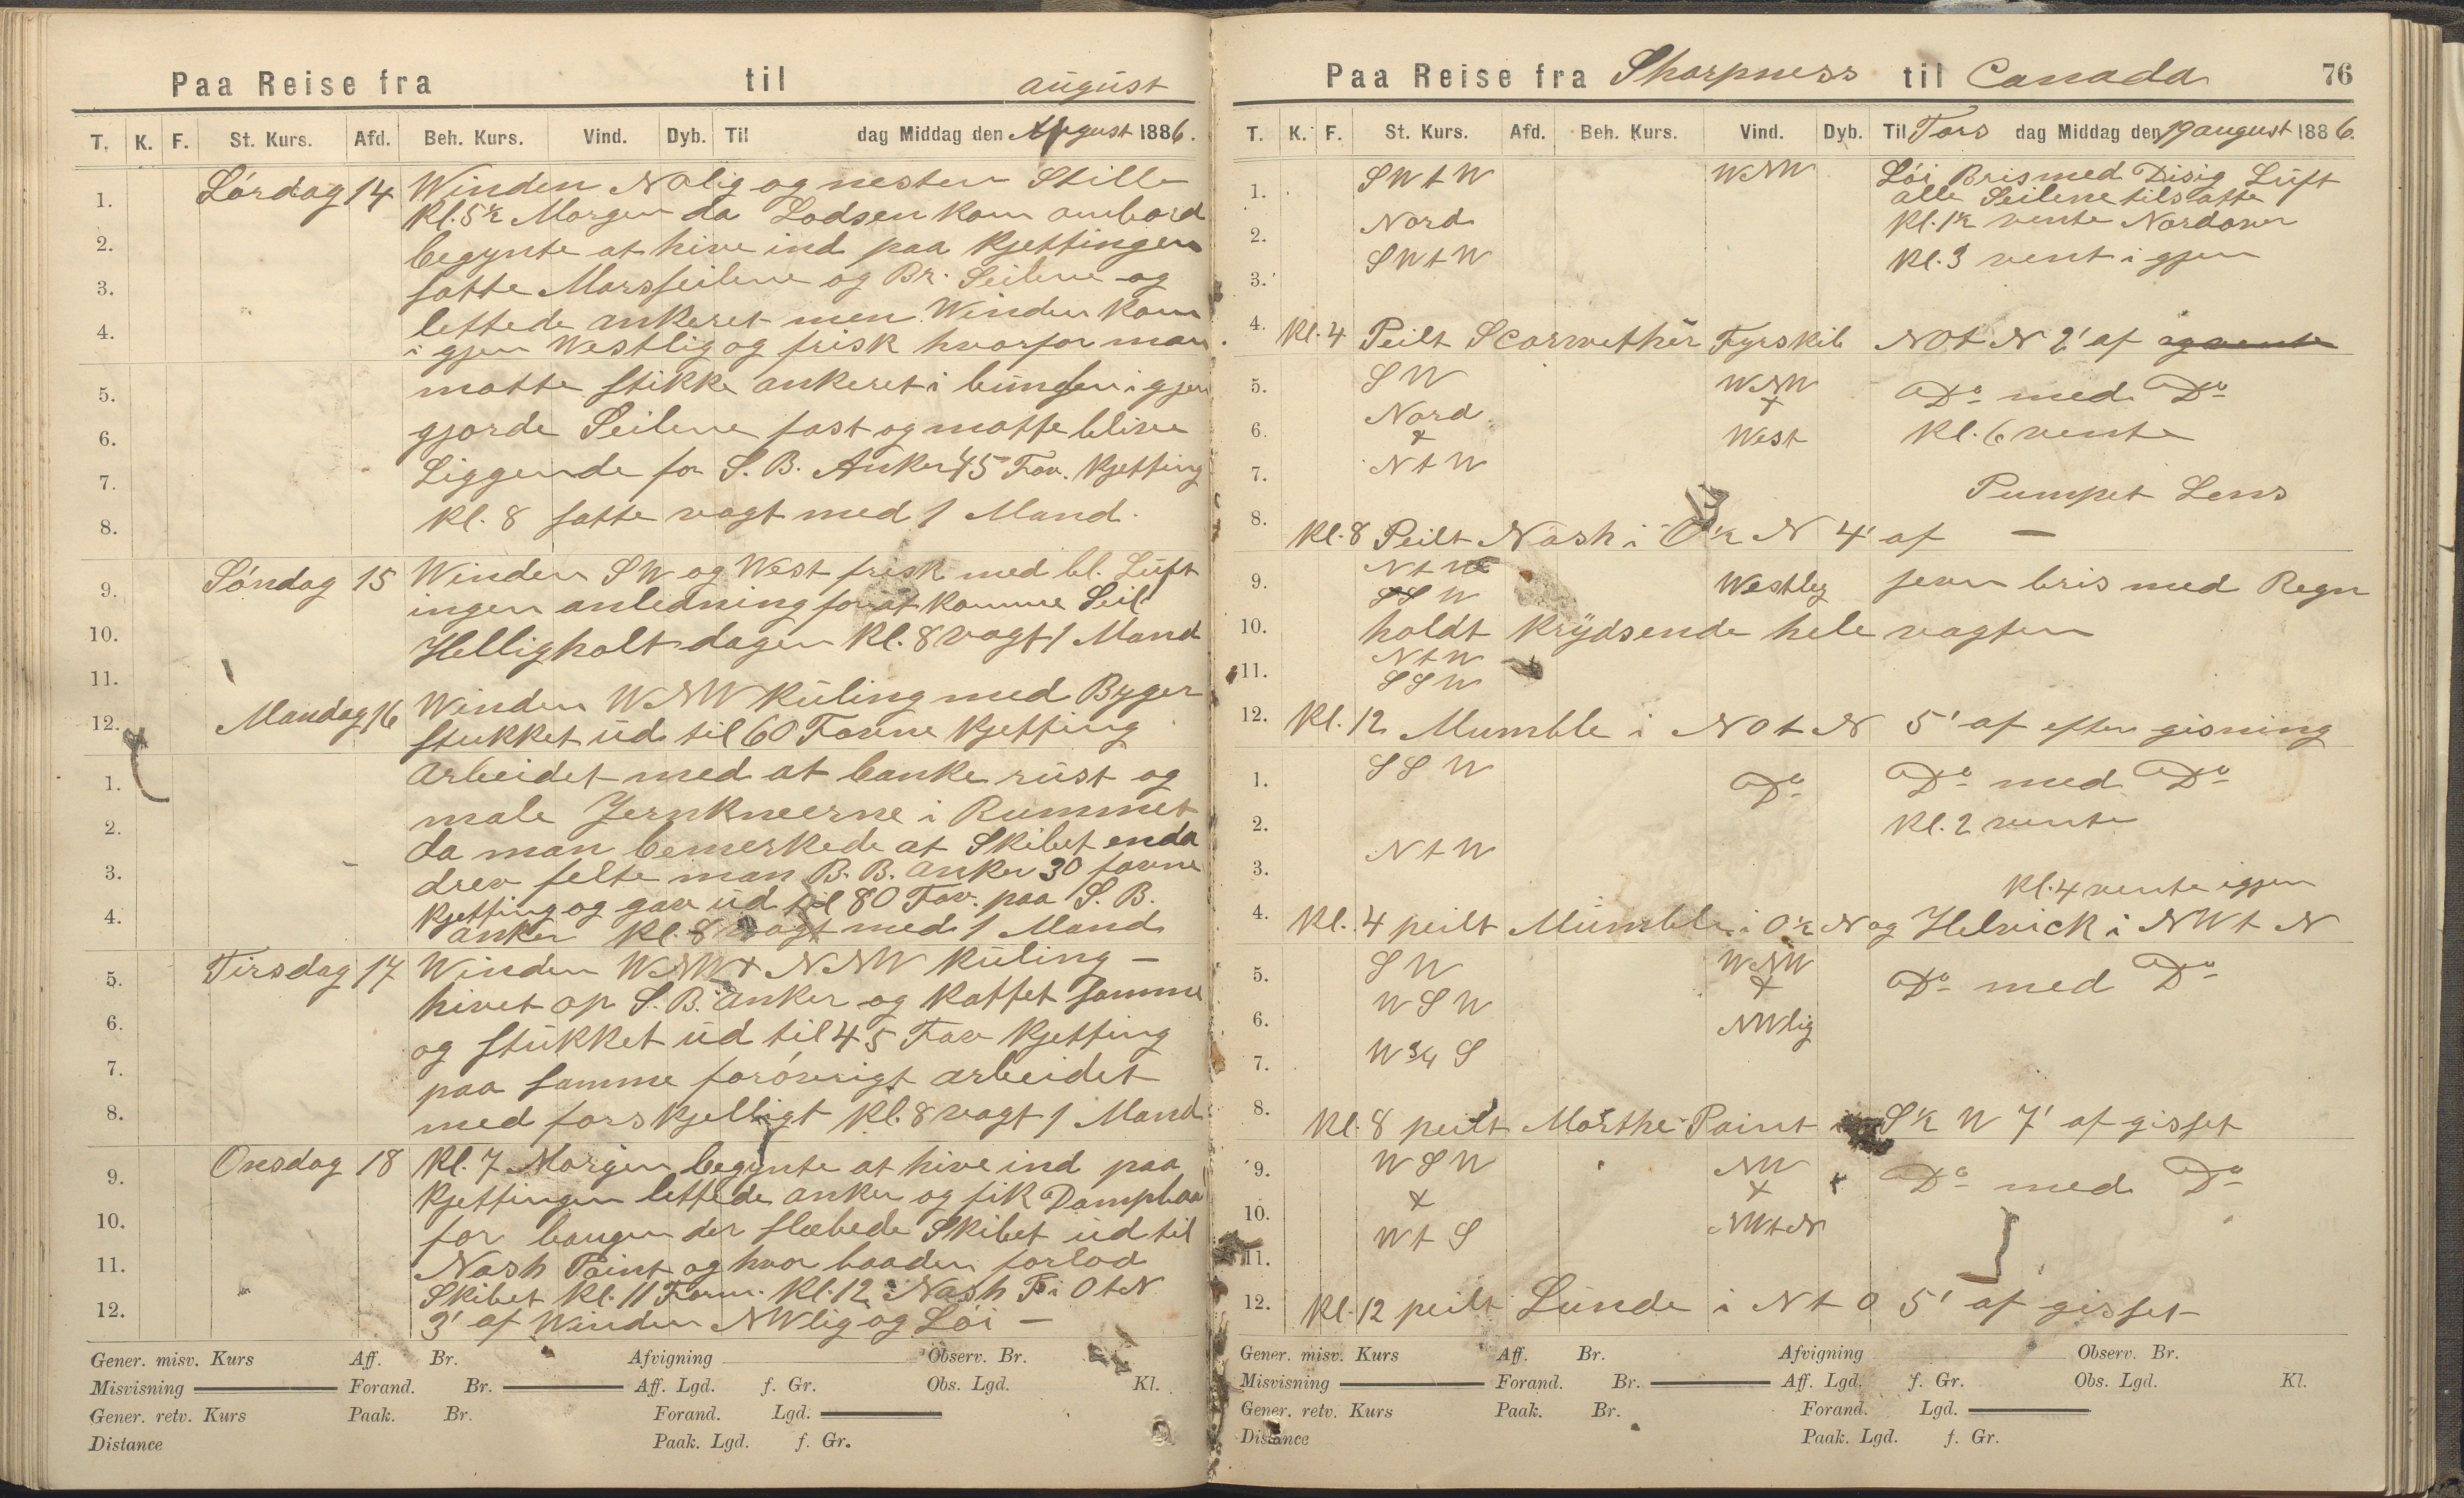 Paa Reise fra til august
T. K. F. St. Kurs. Afd. Beh. Kurs. Vind. Dyb. Til dag Middag den August 1886.
Lórdag 14 Winden Nolig og nesten Stille
1. Kl. 5½ Morgen da Lodsen kom ombord
2. begynte at hive ind paa Kjettingen
3. satte Marsseilene og Br. Seilene og
lettede ankeret men Winden kom
4. i gjen Westlig og frisk hvorfor man
5. matte stikke ankeret i bunden i gjen
6. gjorde Seilene fast og matte blive
7. Liggende for S. B. Anker 45 Fav. Kjetting
8. Kl. 8 satte vagt med 1 Mand.
9. Sóndag 15 Winden SW og West frisk med bl. Lúft
ingen anledning for at komme Seil
10. Helligholt dagen Kl. 8 vagt 1 Mand
11.
12. Mandag 16 Winden WNW Kúling med Byger
stukket úd til 60 Favne Kjetting
1. Arbeidet med at banke rúst og
2. male Jernkneerne i Rummet
da man bemerkede at Skibet enda
3. drev felte man B. B. anker 30 favne
Kjetting og gav úd til 80 Fav. paa S. B.
4. anker Kl. 8 vagt med 1 Mand
5. Tirsdag 17 Winden WNW + NNW Kúling —
hivet op S. B. anker og kattet samme
6. og stúkket úd til 45 Fav Kjetting
7. paa samme foróvrigt arbeidet
8. med forskjelligt Kl. 8 vagt 1 Mand
9. Onsdag 18 Kl. 7 Morgen begynte at hive ind paa
Kjettingen lettede anker og fik Dampbaa
10. for baugen der slæbede Skibet úd til
11. Nash Point og hvor baaden forlod
Skibet Kl. 11 Form. Kl. 12 Nash P. i O t N
12. 3' af Winden NWlig og Lói —
Gener. misv. Kurs Aff. Br. Afvigning Observ. Br.
Misvisning Forand. Br. Aff. Lgd. f. Gr. Obs. Lgd. Kl.
Gener. retv. Kurs Paak. Br. Forand. Lgd.
Distance Paak. Lgd. f. Gr.
Paa Reise fra Sharpness til Canada 76
T. K. F. St. Kurs. Afd. Beh. Kurs. Vind. Dyb. Til Tors dag Middag den 19 august 1886.
1. SW t W WNW Lói Bris med Disig Lúft
alle Seilene tilsatte
2. Nord Kl. 1½ vente Nordover
3. SW t W Kl. 3 vent i gjen
4. Kl. 4 Peilt Scarwether Fyrskib NO t N 2' af og vente
5. SW WNW Do med Do
6. Nord + West Kl. 6 vente
7. N t W
Pumpet Lens
8. Kl. 8 Peilt Nash i O½ N 4' af —
9. N t W Westlig jevn bris med Regn
SSW
10. holdt krÿdsende hele vagten
11. N t W
SSW
12. Kl. 12 Mumble i NO t N 5' af efter gisning
1. SSW Do Do med Do
2. Kl. 2 vente
3. N t W
Kl. 4 vente igjen
4. Kl. 4 peilt Múmble i O½ N og Helvick i NW t N
5. SW WNW Do med Do
6. WSW + NWlig
7. W ¾ S
8. Kl. 8 peilt Morthe Point S½ W 7' af gisset
9. WSW NW Do med Do
10. + +
11. W t S NW t N
12. Kl. 12 peilt Lúnde i N t O 5' af gisset
Gener. misv. Kurs Aff. Br. Afvigning Observ. Br.
Misvisning Forand. Br. Aff. Lgd. f. Gr. Obs. Lgd. Kl.
Gener. retv. Kurs Paak. Br. Forand. Lgd.
Distance Paak. Lgd. f. Gr.